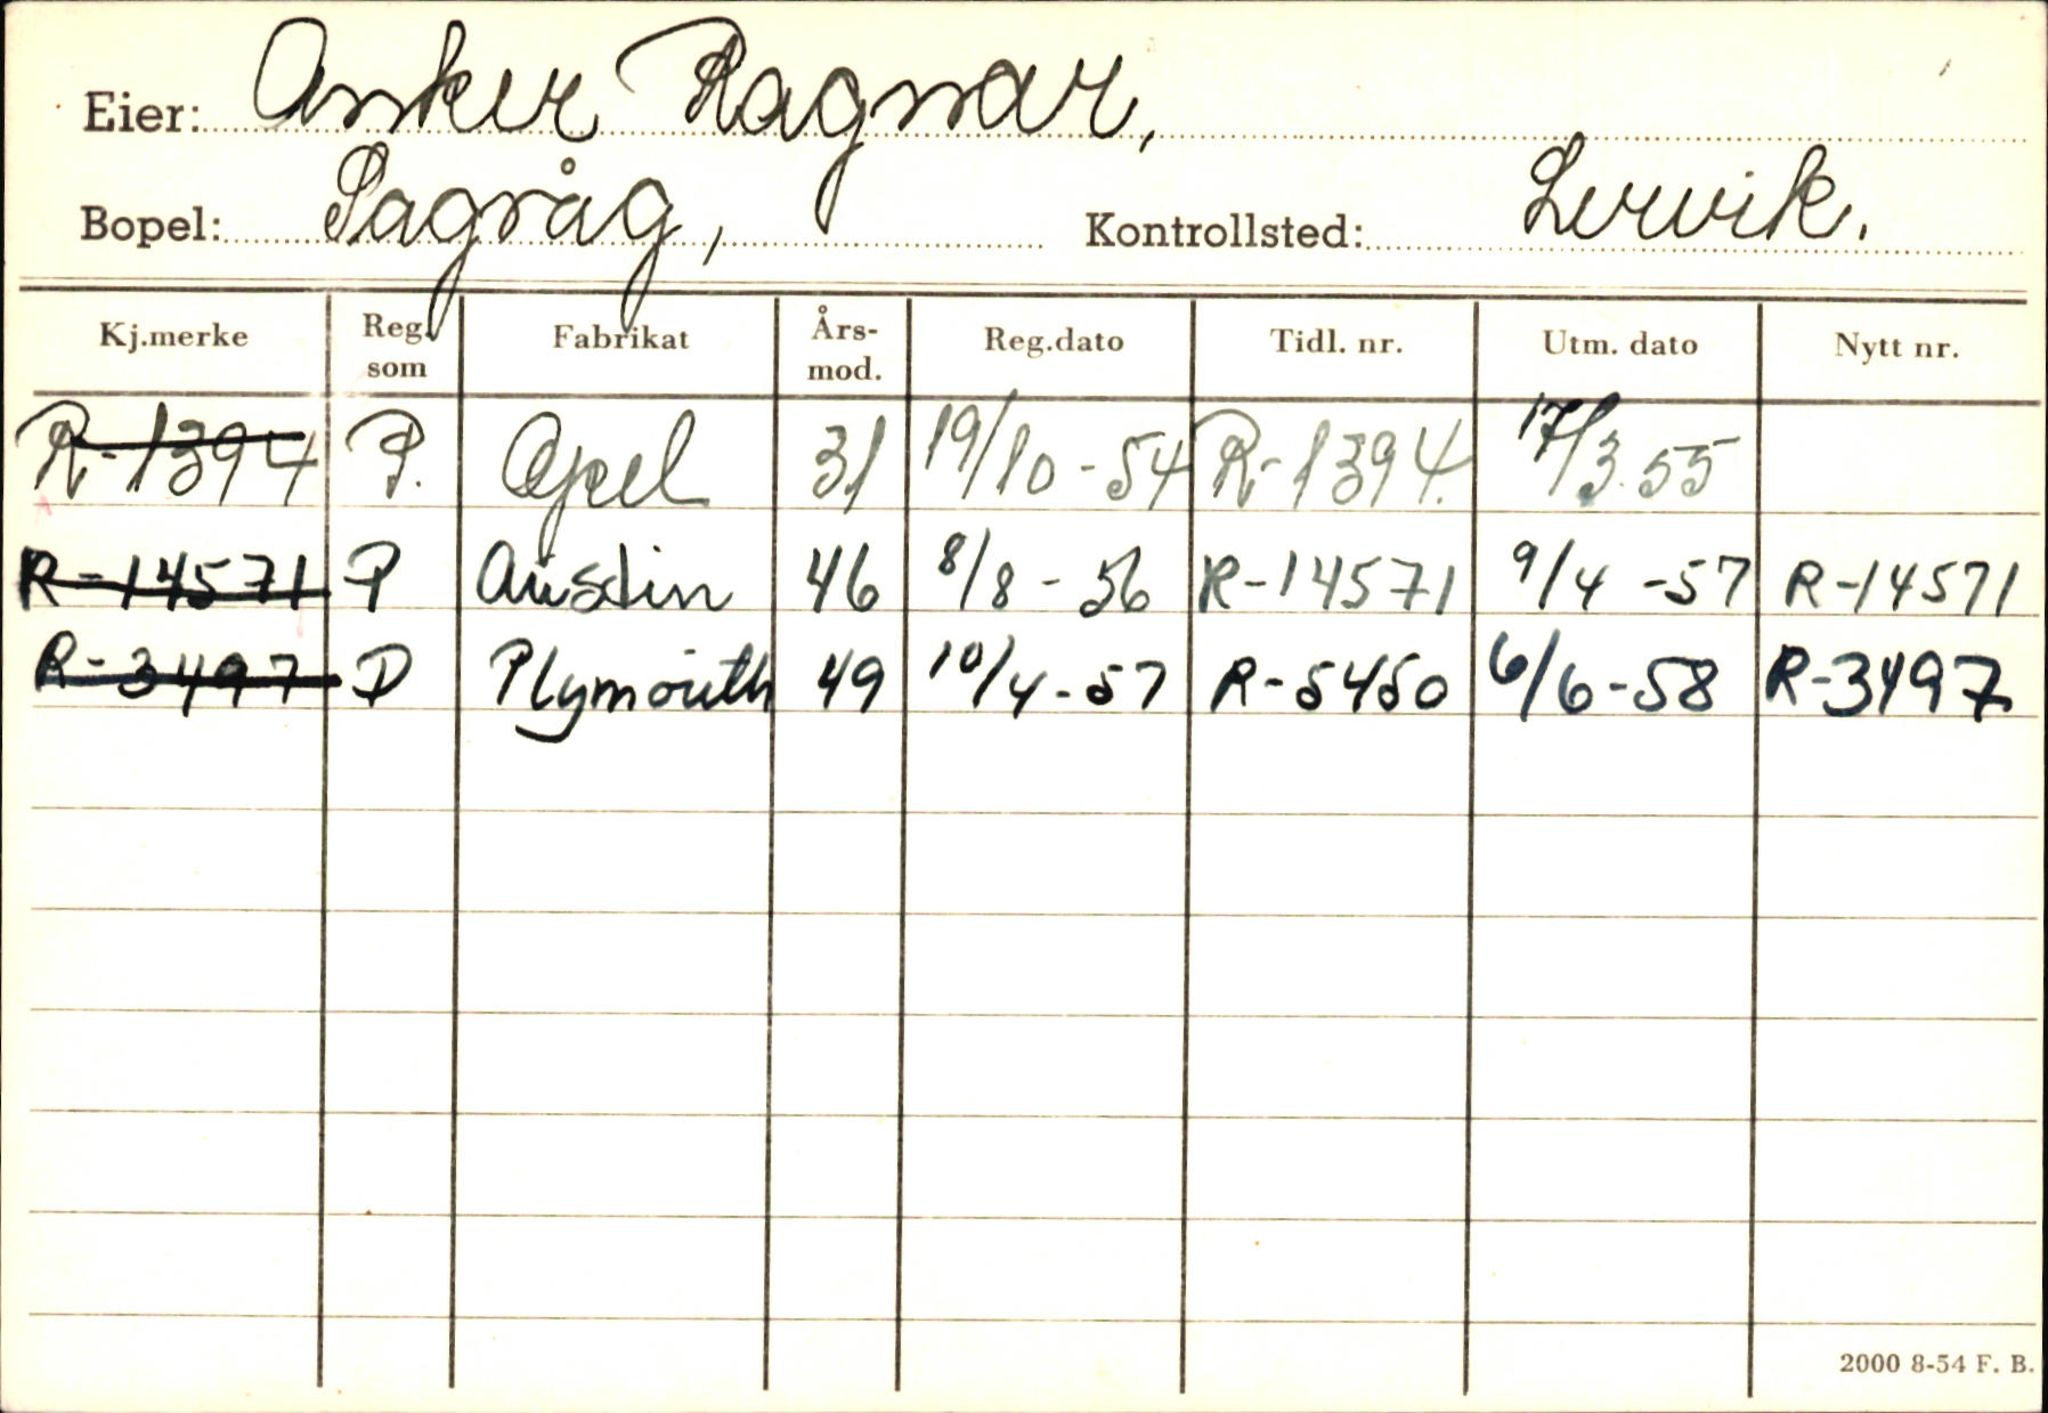 Eier: Anker Ragnar,
Bopel: Sagvåg, Kontrollsted: Lervik.
Kj.merke Reg. som Fabrikat Års-mod. Reg.dato Tidl. nr. Utm. dato Nytt nr.
R-1394 P. Opel 31 19/10-54 R-1394. 17/3.55
R-14571 P Austin 46 8/8-56 R-14571 9/4-57 R-14571
R-3497 D Plymouth 49 10/4-57 R-5450 6/6-58 R-3497
2000 8-54 F. B.